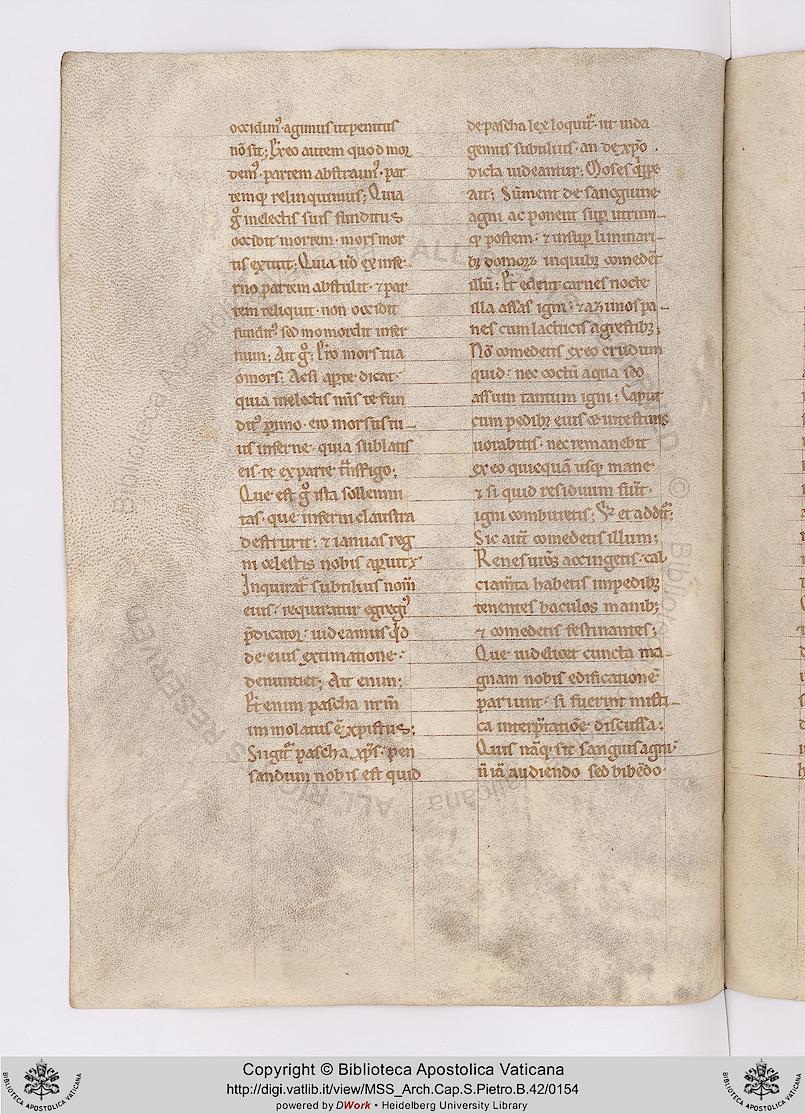 occidim᷒ agimus ut penitus
nō sit; Ex eo autem quod mor
dem᷒ partem abstraim᷒ par
temq; relinquimus; Quia
g̊ in electis suis funditus
occidit mortem· mors mor
tis extitit; Quia ū̊ ex infer
no partem abstulit· ⁊ par
tem reliquit· non occidit
fundit᷒ sed momordit infer
num; Ait g̊; Ero mors tua
o mors; Ac si apte dicat·
quia in electis m̄is te fun
dit᷒ perimo· ero morsus tu
us inferne· quia sublatis
eis te ex parte t̄nsfigo;
Que est g̊ ista sollemni
tas· que inferni claustra
destruxit· ⁊ ianuas reg
ni celestis nobis aperuit
Inquirat᷒ subtilius nom̄
eius· requiratur egregi᷒
p̄dicator· uideamus q̊d
de eius extimatione·
denuntiet; Ait enim;
Etenim pascha nr̄m
immolatus ē xpistus;
Si igit᷒ pascha xp̄s· pen
sandum nobis est quid
de pascha lex loquit᷒· ut inda
gemus subtilius· an de xp̄o
dicta uideantur; Moses q̄ppe
ait; Sument de sanguine
agni ac ponent sup utrum
q; postem· ⁊ in sup liminari
b; domorꝝ in quib; comedēt
illū; Et edent carnes nocte
illa assas igni· ⁊ azimos pa
nes cum lactucis agrestib;
Nō comedetis ex eo crudum
quid· nec coctū aqua sed
assum tantum igni; Caput
cum pedib; eius ⁊ intestinis
uorabitis· nec remanebit
ex eo quicquā usq; mane
⁊ si quid residuum fuīt·
igni comburetis; Vbi et addit᷒;
Sic aut̄ comedetis illum;
Renes ur̄os accingetis· cal
ciam̄ta habetis in pedib;
tenentes baculos manib;
⁊ comedetis festinantes;
Que uidelicet cuncta ma
gnam nobis edificationē
pariunt· si fuerint misti
ca interp̄tatiōe discussa;
Quis nāq; sit sanguis agni·
n̄ iā audiendo sed bibēdo·
Copyright © Biblioteca Apostolica Vaticana
http://digi.vatlib.it/view/MSS_Arch.Cap.S.Pietro.B.42/0154
powered by DWork • Heidelberg University Library